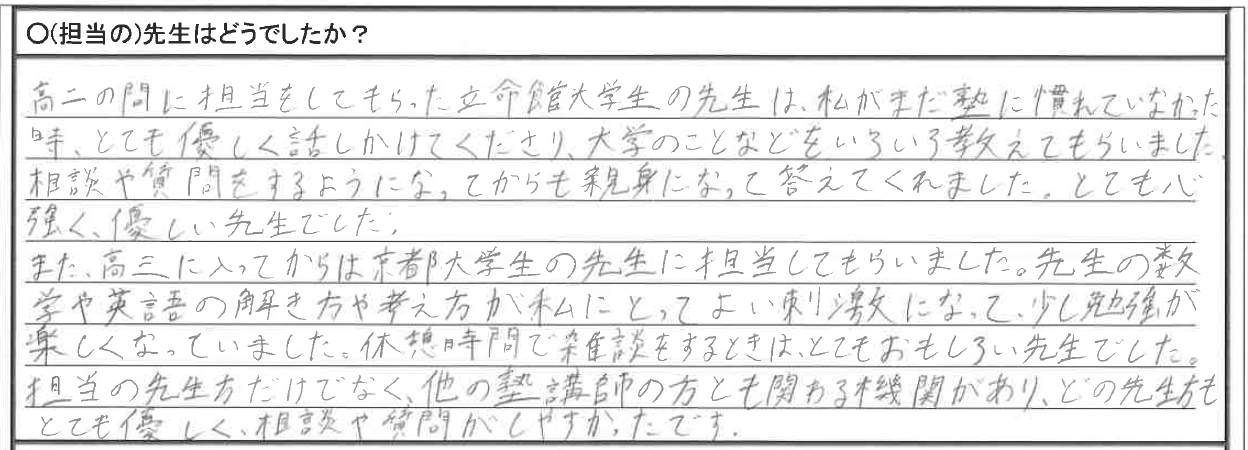 〇(担当の)先生はどうでしたか？
高二の間に担当をしてもらった立命館大学生の先生は、私がまだ塾に慣れていなかった
時、とても優しく話しかけてくださり、大学のことなどをいろいろ教えてもらいました。
相談や質問をするようになってからも親身になって答えてくれました。とても心
強く、優しい先生でした。
また、高三に入ってからは京都大学生の先生に担当してもらいました。先生の数
学や英語の解き方や考え方が私にとってよい刺激になって、少し勉強が
楽しくなっていました。休憩時間で雑談をするときは、とてもおもしろい先生でした。
担当の先生方だけでなく、他の塾講師の方とも関わる機関があり、どの先生方も
とても優しく、相談や質問がしやすかったです。